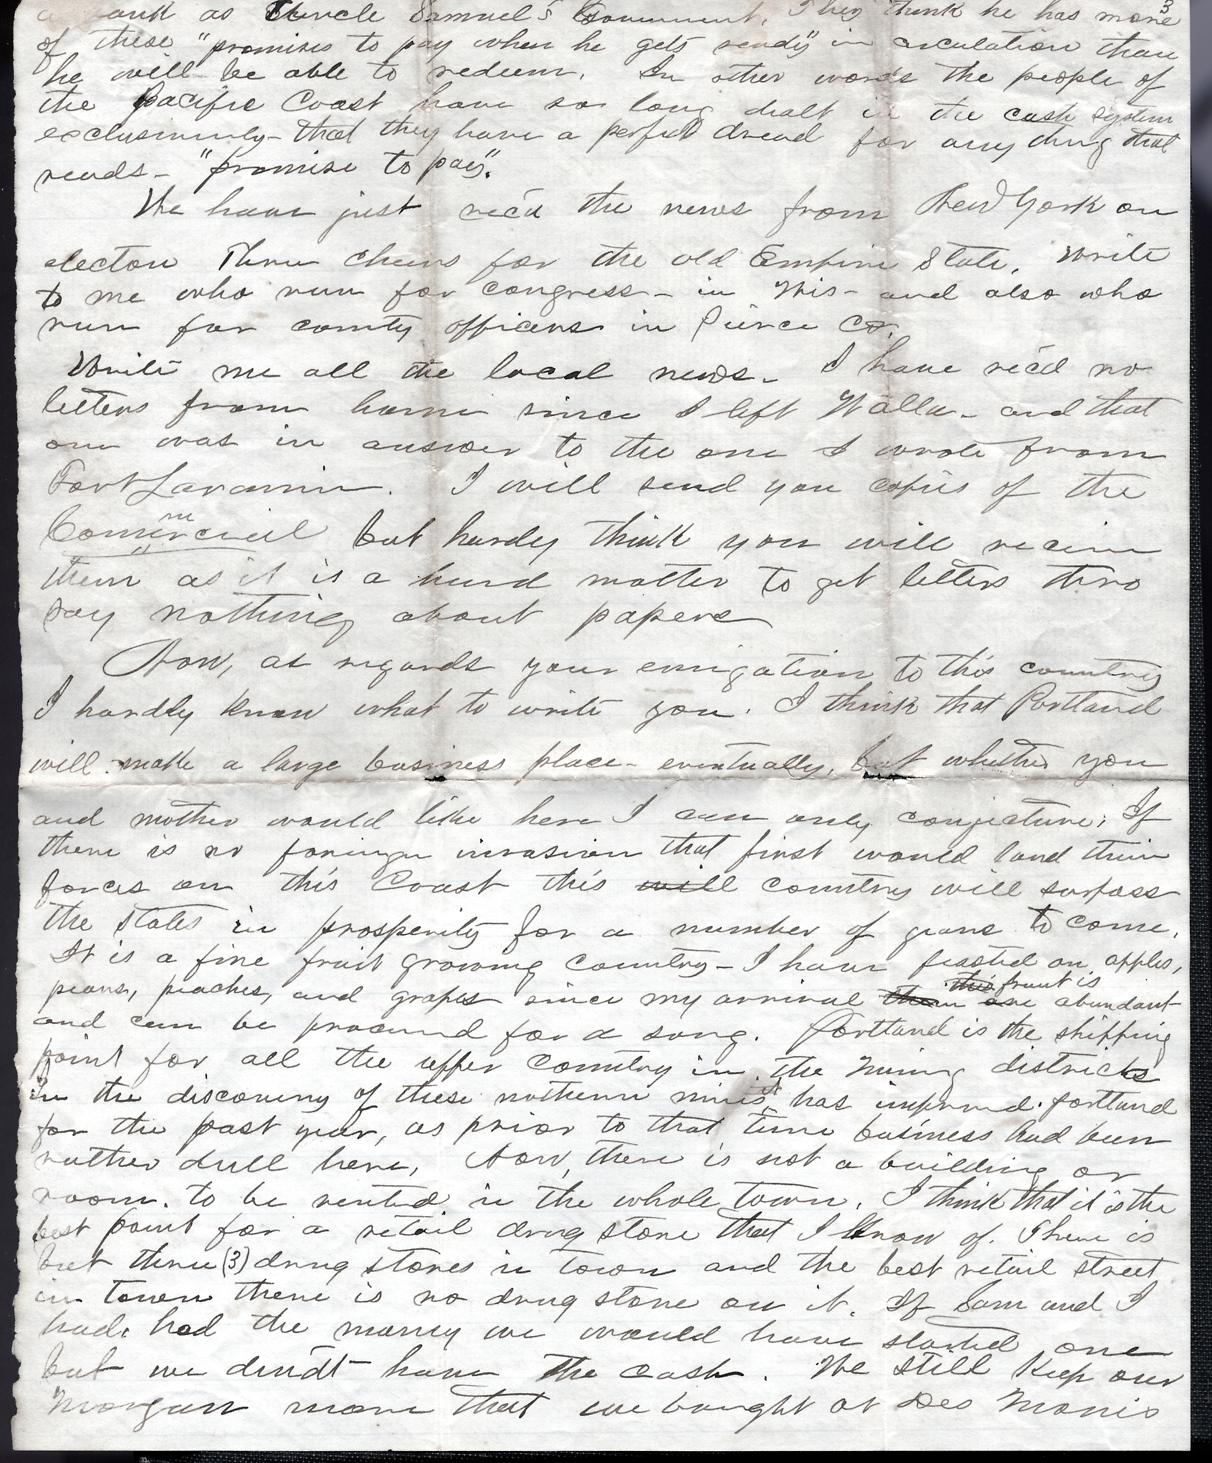 3
a bank as Uncle Samuel's Government. They think he has more
of these "promises to pay when he gets ready" in circulation than
he will be able to redeem. In other words the people of
the Pacific Coast have so long dealt in the cash system
exclusively - that they have a perfect dread for any thing that
reads - "promise to pay".
We have just rec'd the news from New York on
election Three cheers for the old Empire State. Write
to me who run for congress - in Wis - and also who
run for county officers in Pierce Co.
Write me all the local news - I have rec'd no
letters from home since I left Walla - and that
one was in answer to the one I wrote from
Fort Laramie. I will send you copies of the
Commercial but hardly think you will receive
them as it is a hard matter to get letters thro
say nothing about papers
Now, as regards your emigation to this country
I hardly know what to write you. I think that Portland
will make a large business place - eventually, but whether you
and mother would like here I can only conjecture; If
there is no foreign invasion that first would land their
forces on this Coast this will country will surpass
the states in prosperity for a number of years to come.
It is a fine fruit growing country - I have feasted on apples,
pears, peaches, and grapes since my arrival them are this fruit is abundant
and can be procured for a song. Portland is the shipping
point for all the upper country in the mining districts
In the discovery of these northern mines it has improved Portland
for the past year, as prior to that time business had been
rather dull here. Now, there is not a building or
room. to be rented in the whole town. I think that it is the
best point for a retail drug store that I know of. There is
but three (3) drug stores in town and the best retail street
in town there is no drug store on it. If Sam and I
had. had the money we would have started one
but we dindt have the cash. We still keep our
Morgan mare that we bought at Des Monis